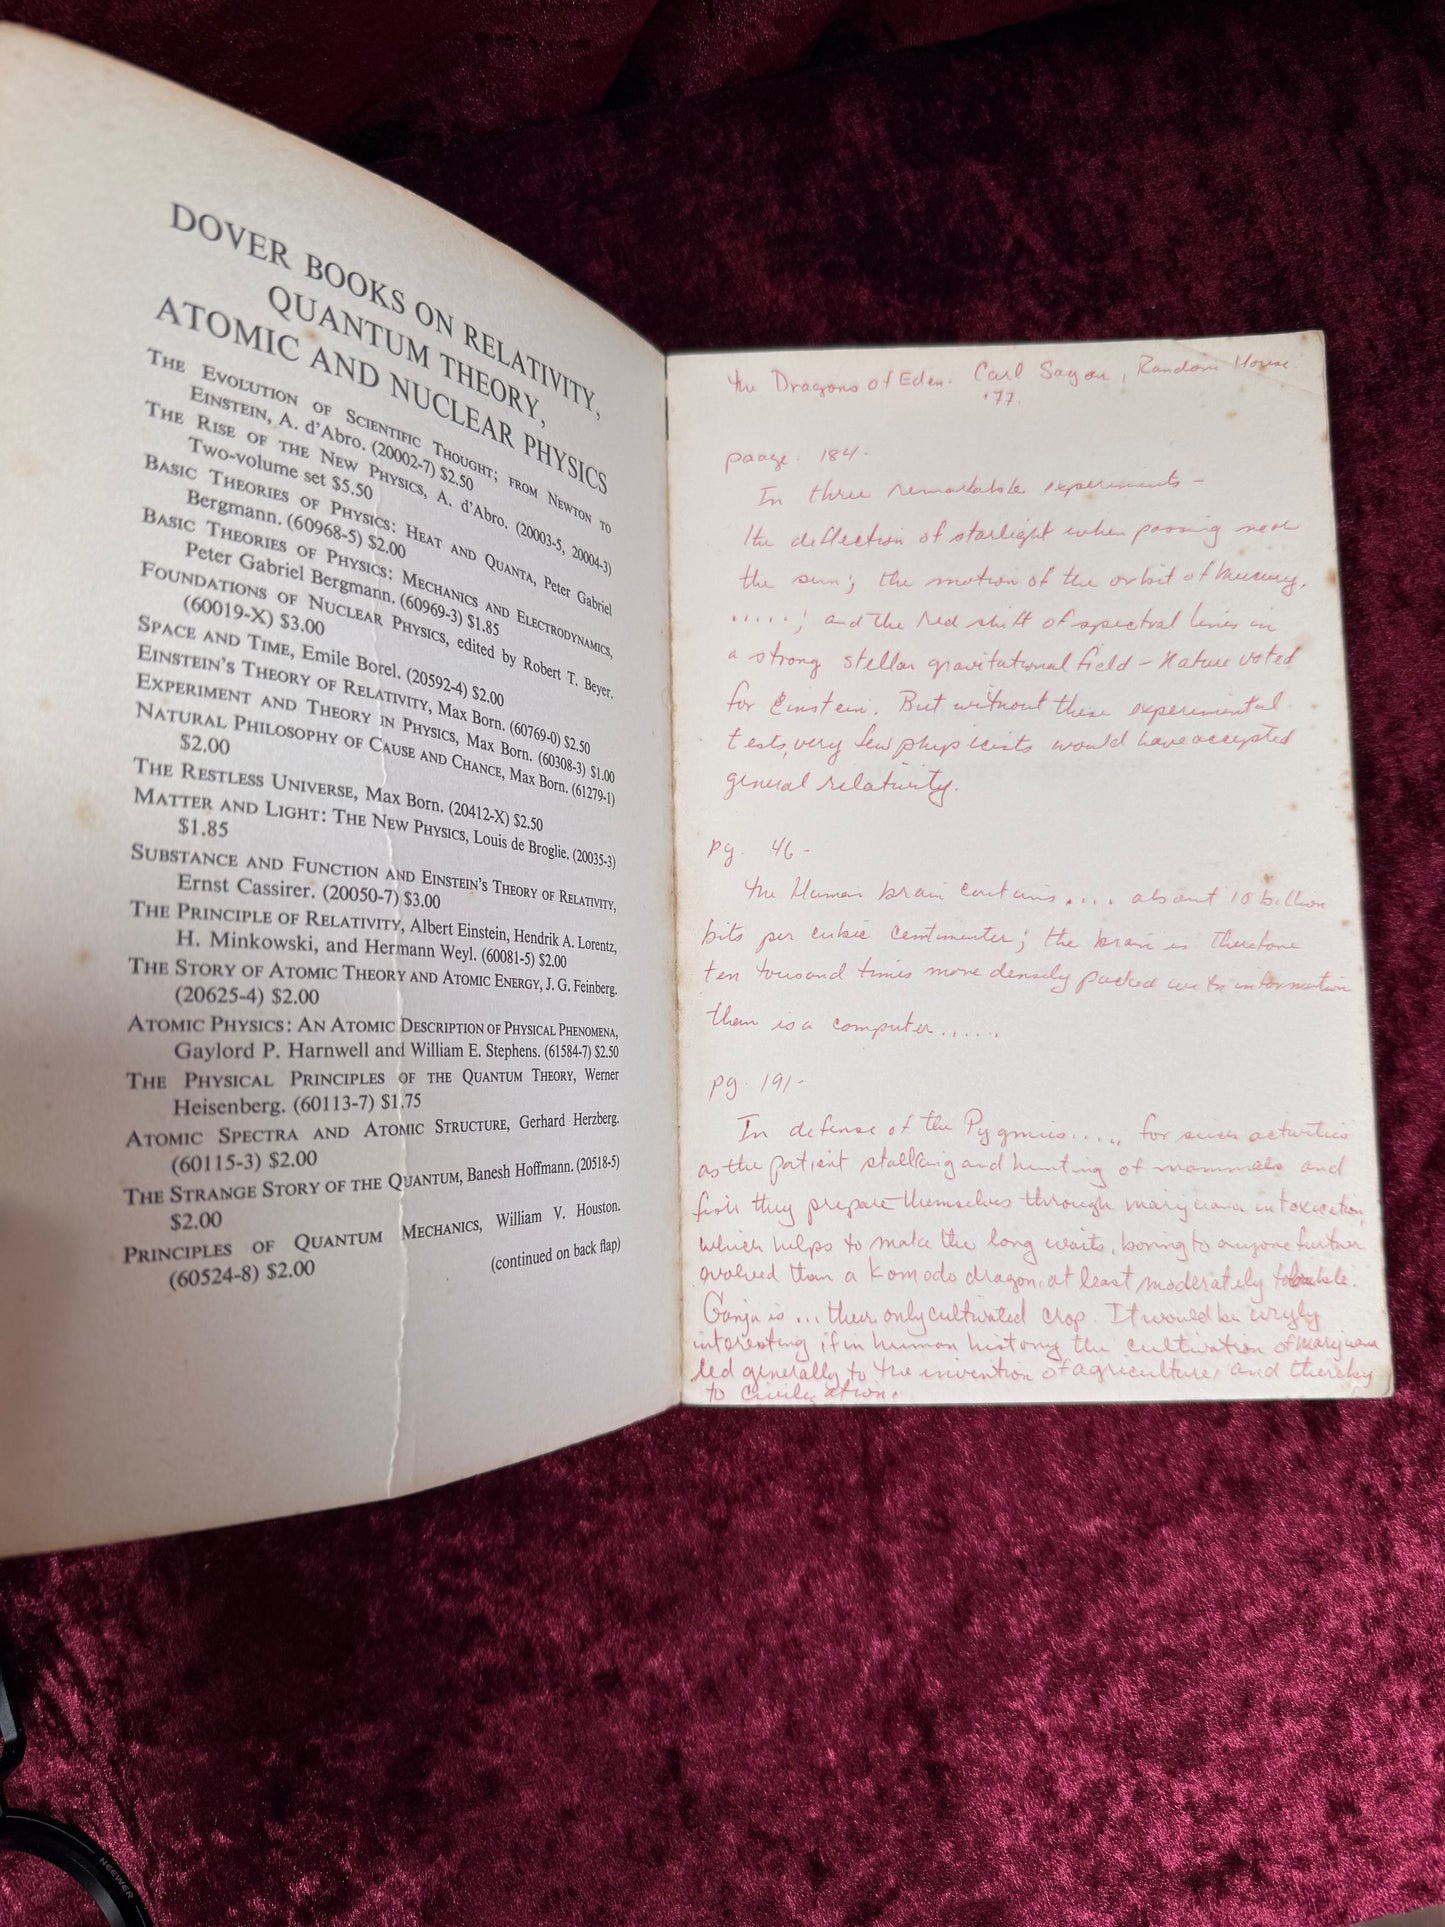 DOVER BOOKS ON RELATIVITY,
QUANTUM THEORY,
ATOMIC AND NUCLEAR PHYSICS
THE EVOLUTION OF SCIENTIFIC THOUGHT; FROM NEWTON TO
EINSTEIN, A. d'Abro. (20002-7) $2.50
THE RISE OF THE NEW PHYSICS, A. d'Abro. (20003-5, 20004-3)
Two-volume set $5.50
BASIC THEORIES OF PHYSICS: HEAT AND QUANTA, Peter Gabriel
Bergmann. (60968-5) $2.00
BASIC THEORIES OF PHYSICS: MECHANICS AND ELECTRODYNAMICS,
Peter Gabriel Bergmann. (60969-3) $1.85
FOUNDATIONS OF NUCLEAR PHYSICS, edited by Robert T. Beyer.
(60019-X) $3.00
SPACE AND TIME, Emile Borel. (20592-4) $2.00
EINSTEIN'S THEORY OF RELATIVITY, Max Born. (60769-0) $2.50
EXPERIMENT AND THEORY IN PHYSICS, Max Born. (60308-3) $1.00
NATURAL PHILOSOPHY OF CAUSE AND CHANCE, Max Born. (61279-1)
$2.00
THE RESTLESS UNIVERSE, Max Born. (20412-X) $2.50
MATTER AND LIGHT: THE NEW PHYSICS, Louis de Broglie. (20035-3)
$1.85
SUBSTANCE AND FUNCTION AND EINSTEIN'S THEORY OF RELATIVITY,
Ernst Cassirer. (20050-7) $3.00
THE PRINCIPLE OF RELATIVITY, Albert Einstein, Hendrik A. Lorentz,
H. Minkowski, and Hermann Weyl. (60081-5) $2.00
THE STORY OF ATOMIC THEORY AND ATOMIC ENERGY, J. G. Feinberg.
(20625-4) $2.00
ATOMIC PHYSICS: AN ATOMIC DESCRIPTION OF PHYSICAL PHENOMENA,
Gaylord P. Harnwell and William E. Stephens. (61584-7) $2.50
THE PHYSICAL PRINCIPLES OF THE QUANTUM THEORY, Werner
Heisenberg. (60113-7) $1.75
ATOMIC SPECTRA AND ATOMIC STRUCTURE, Gerhard Herzberg.
(60115-3) $2.00
THE STRANGE STORY OF THE QUANTUM, Banesh Hoffmann. (20518-5)
$2.00
PRINCIPLES OF QUANTUM MECHANICS, William V. Houston.
(60524-8) $2.00
(continued on back flap)
the Dragons of Eden. Carl Sagan, Random House
'77.
paage. 184-
In three remarkable experiments -
the deflection of starlight when passing near
the sun; the motion of the orbit of Mercury.
.....; and the red shift of spectral lines in
a strong stellar gravitational field - nature voted
for Einstein. But without these experimental
tests, very few physicists would have accepted
general relativity.
pg. 46-
the Human brain contains.... about 10 billion
bits per cubic centimenter; the brain is therefore
ten tousand times more densely packed with information
than is a computer......
pg. 191-
In defense of the Pygmies..... for such activities
as the patient stalking and hunting of mammals and
fish they prepare themselves through marijuana intoxication,
which helps to make the long waits, boring to anyone further
evolved than a Komodo dragon, at least moderately tolerable.
Ganja is ... their only cultivated crop. It would be wryly
interesting if in human history the cultivation of marijuana
led generally to the invention of agriculture, and thereby
to civilization.
NEEWER